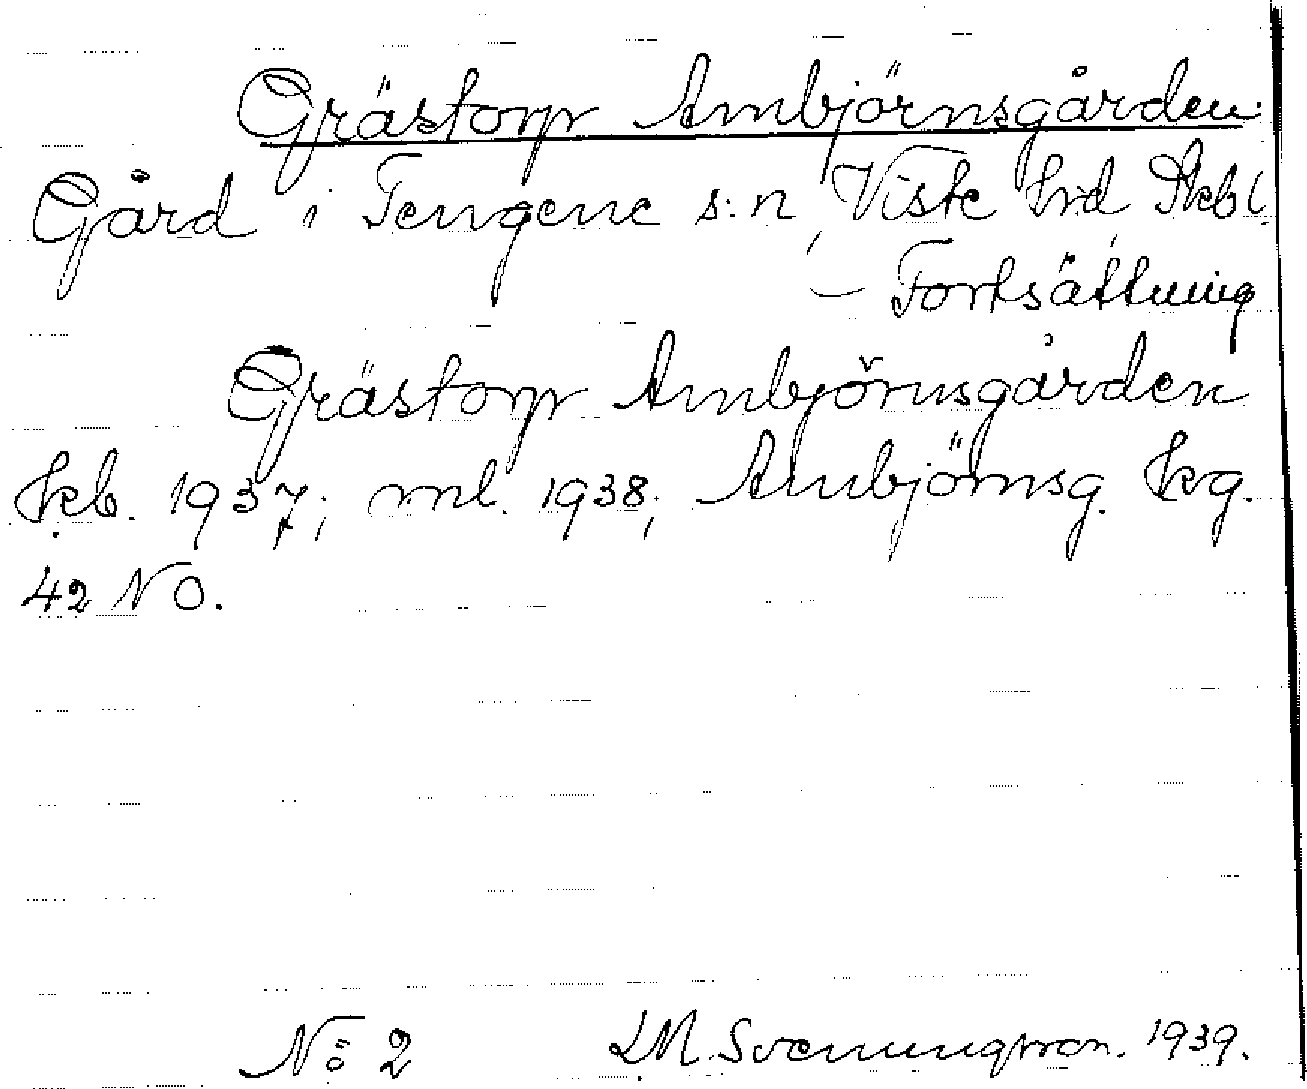 Grästorp Ambjörnsgården.
Gård i Tengene s:n, Viste hrd Skbl.
— Fortsättning
Grästorp Ambjörnsgården
Jkb. 1937; ml. 1938; Ambjörnsg. Kg.
42 NO.
No 2 LM. Svenungsson. 1939.